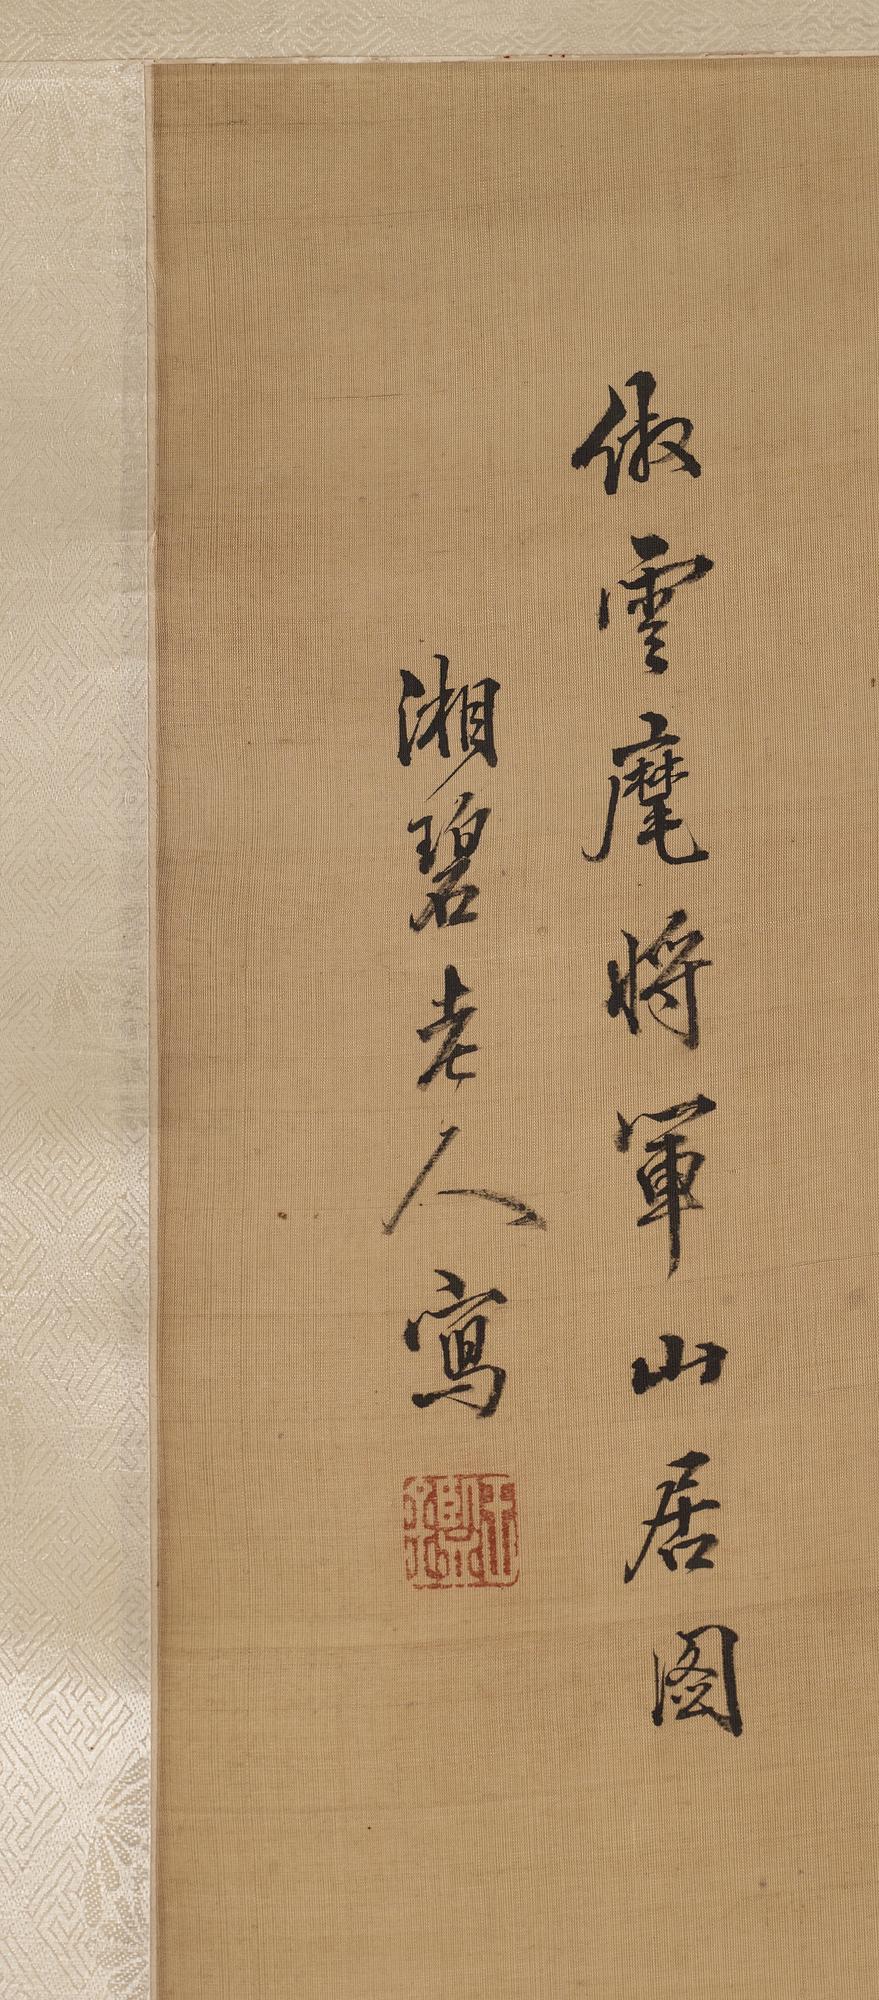 倣雲麾將軍山居圖
湘碧老人寫